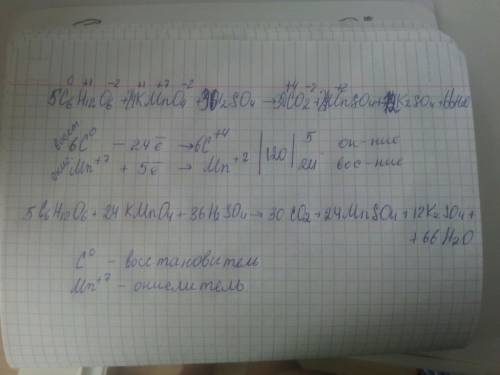 0 +1 -2 +1 +7 -2 +4 -2 +2
5C6H12O6 + KMnO4 + H2SO4 → CO2 + MnSO4 + K2SO4 + H2O
6C⁰ - 24ē → 6C⁺⁴ | 120 | 5 ок-ние
Mn⁺⁷ + 5ē → Mn⁺² 24 вос-ние
5C6H12O6 + 24KMnO4 + 36H2SO4 → 30CO2 + 24MnSO4 + 12K2SO4 +
+ 66H2O
C⁰ - восстановитель
Mn⁺⁷ - окислитель